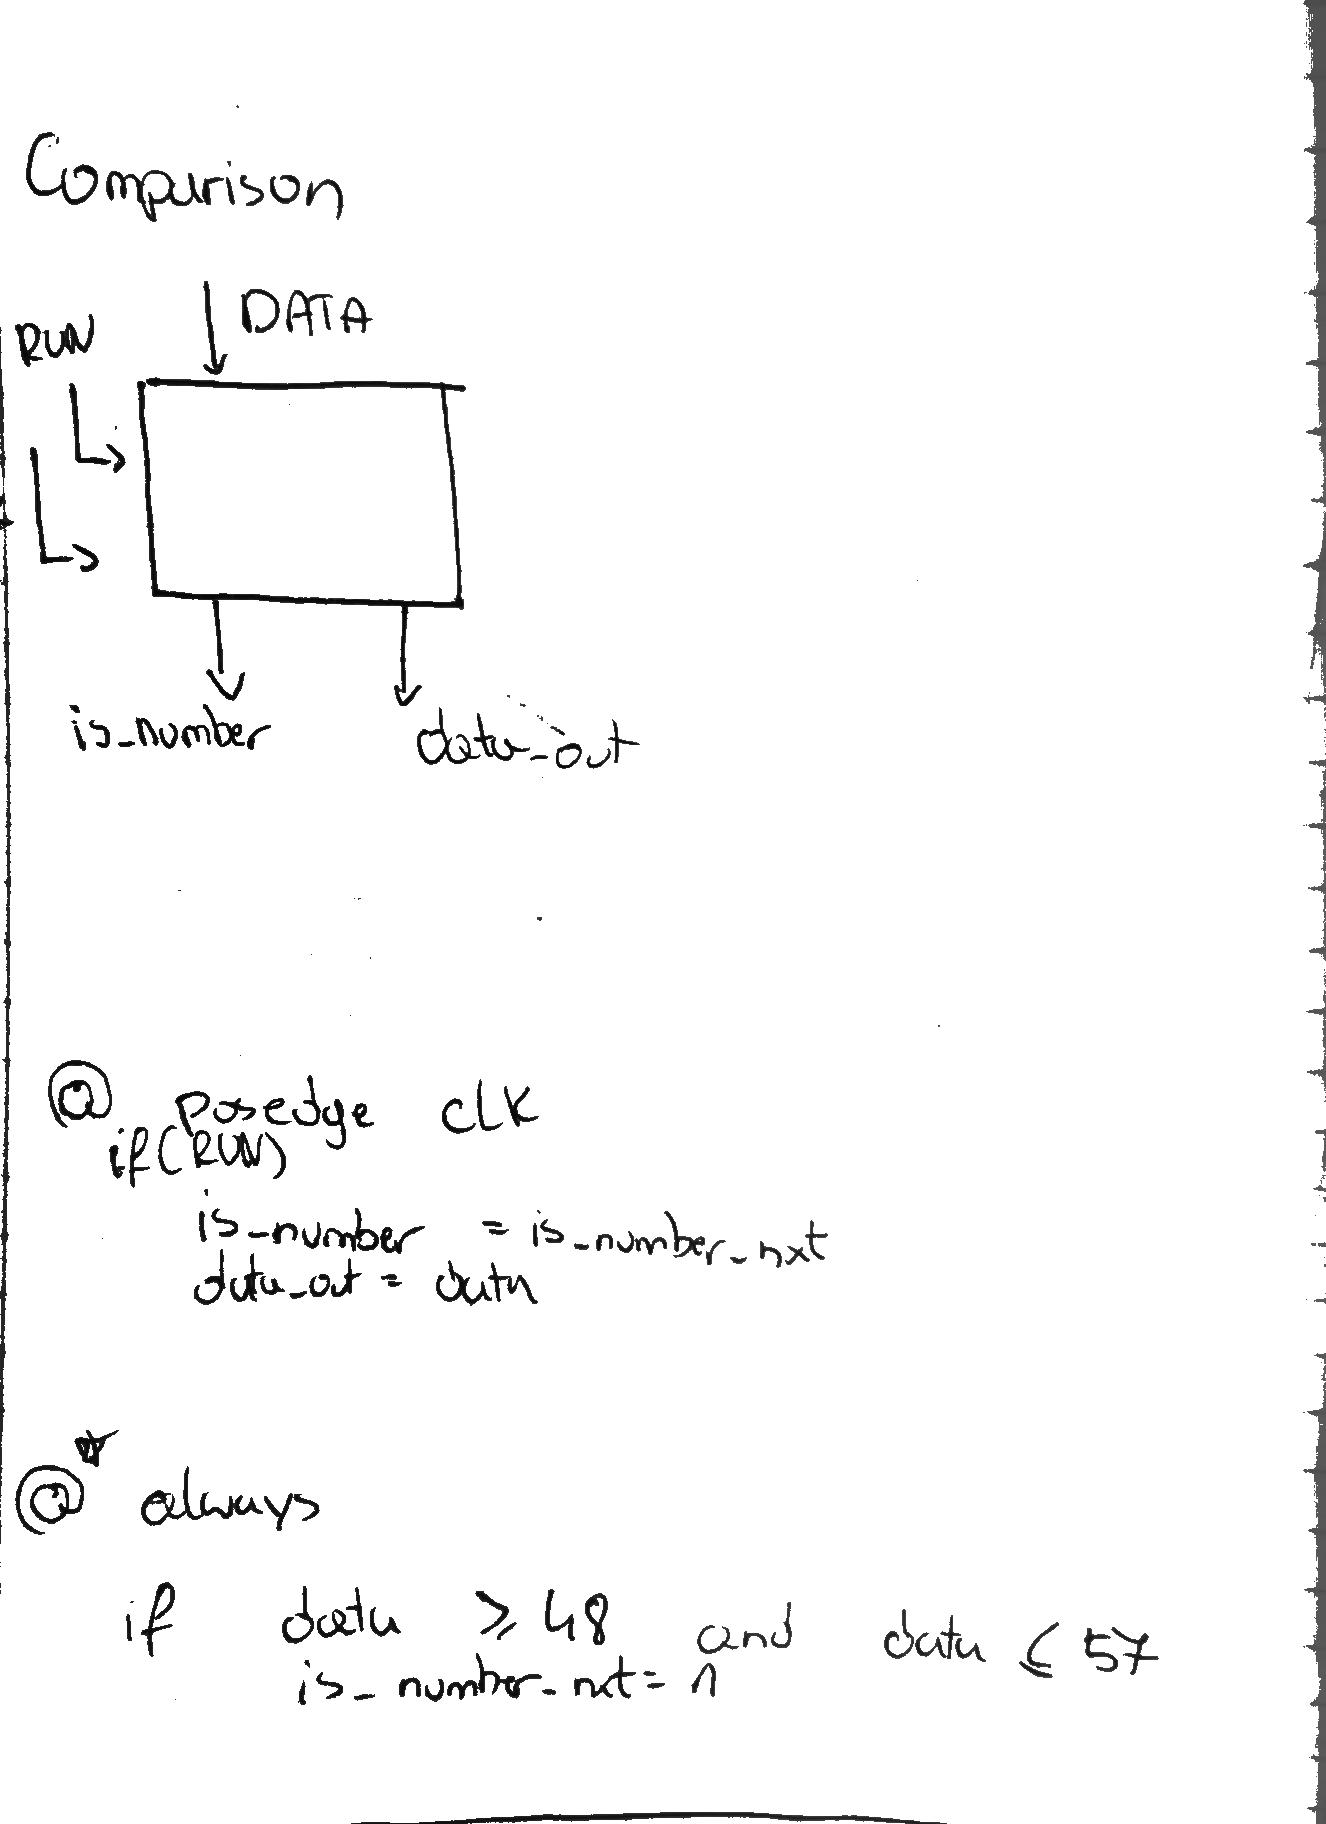 Comparison
DATA
RUN
is_number
data_out
@ posedge CLK
if (RUN)
is_number = is_number_nxt
data_out = data
@* always
if data ≥ 48 and data ≤ 57
is_number_nxt = 1